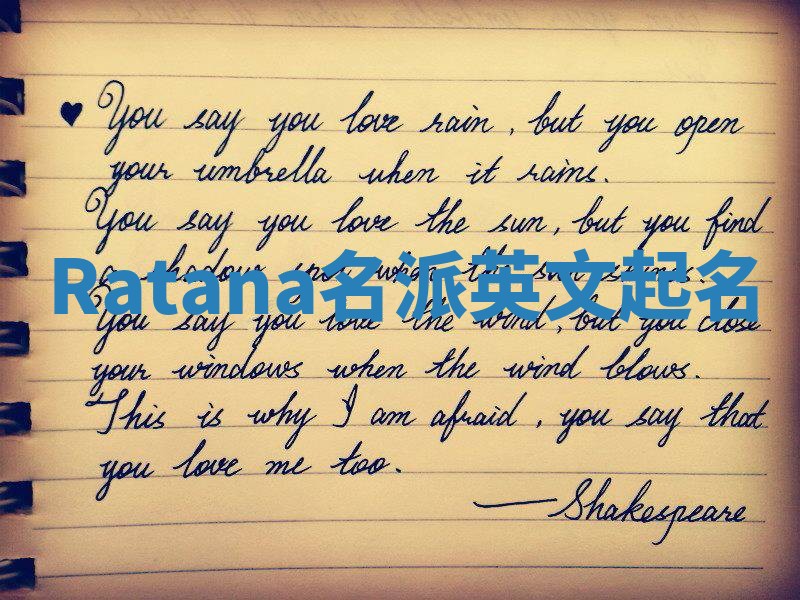 ♥ You say you love rain, but you open
your umbrella when it rains.
You say you love the sun, but you find
a shadow spot when the sun shines.
Ratana名派英文起名
You say you love the wind, but you close
your windows when the wind blows.
This is why I am afraid, you say that
you love me too.
—Shakespeare